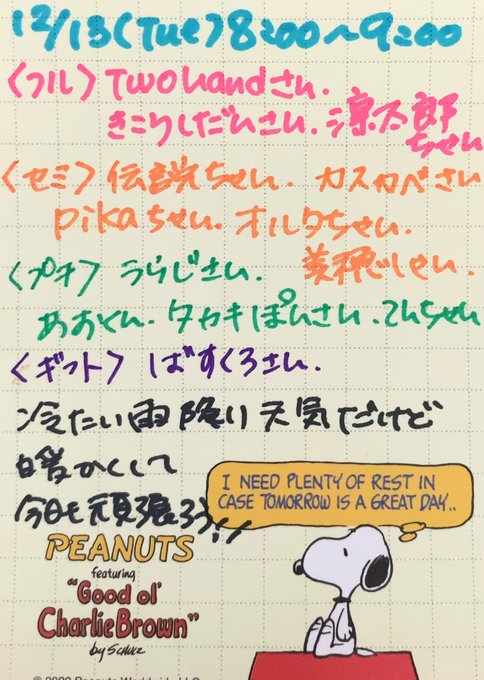 12/13(Tue)8:00〜9:00
〈フル〉Twohandさん.
きこりしだいさん.涼太郎
ちゃん
〈セミ〉伝説ちゃん.カスカベさん
pikaちゃん.オルタちゃん.
〈プチ〉うらじさん.
あおくん.タカキぽんさん.こんちゃん
〈ギフト〉ばすくろさん.
冷たい雨降り天気だけど
暖かくして
今日も頑張ろう!!
I NEED PLENTY OF REST IN
CASE TOMORROW IS A GREAT DAY..
PEANUTS
featuring
"Good ol'
CharlieBrown"
by SCHULZ